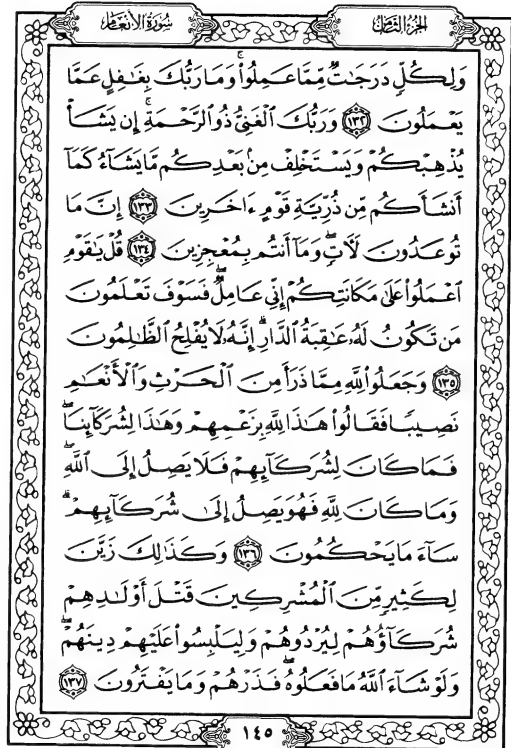 الجزء الثامن
سورة الأنعام
وَلِكُلٍّ دَرَجَٰتٌ مِّمَّا عَمِلُوا۟ ۚ وَمَا رَبُّكَ بِغَٰفِلٍ عَمَّا
يَعْمَلُونَ ﴿١٣٢﴾ وَرَبُّكَ ٱلْغَنِىُّ ذُو ٱلرَّحْمَةِ ۚ إِن يَشَأْ
يُذْهِبْكُمْ وَيَسْتَخْلِفْ مِنۢ بَعْدِكُم مَّا يَشَآءُ كَمَآ
أَنشَأَكُم مِّن ذُرِّيَّةِ قَوْمٍ ءَاخَرِينَ ﴿١٣٣﴾ إِنَّ مَا
تُوعَدُونَ لَءَاتٍ ۖ وَمَآ أَنتُم بِمُعْجِزِينَ ﴿١٣٤﴾ قُلْ يَٰقَوْمِ
ٱعْمَلُوا۟ عَلَىٰ مَكَانَتِكُمْ إِنِّى عَامِلٌ ۖ فَسَوْفَ تَعْلَمُونَ
مَن تَكُونُ لَهُۥ عَٰقِبَةُ ٱلدَّارِ ۗ إِنَّهُۥ لَا يُفْلِحُ ٱلظَّٰلِمُونَ
﴿١٣٥﴾ وَجَعَلُوا۟ لِلَّهِ مِمَّا ذَرَأَ مِنَ ٱلْحَرْثِ وَٱلْأَنْعَٰمِ
نَصِيبًا فَقَالُوا۟ هَٰذَا لِلَّهِ بِزَعْمِهِمْ وَهَٰذَا لِشُرَكَآئِنَا ۖ
فَمَا كَانَ لِشُرَكَآئِهِمْ فَلَا يَصِلُ إِلَى ٱللَّهِ ۖ
وَمَا كَانَ لِلَّهِ فَهُوَ يَصِلُ إِلَىٰ شُرَكَآئِهِمْ ۗ
سَآءَ مَا يَحْكُمُونَ ﴿١٣٦﴾ وَكَذَٰلِكَ زَيَّنَ
لِكَثِيرٍ مِّنَ ٱلْمُشْرِكِينَ قَتْلَ أَوْلَٰدِهِمْ
شُرَكَآؤُهُمْ لِيُرْدُوهُمْ وَلِيَلْبِسُوا۟ عَلَيْهِمْ دِينَهُمْ ۖ
وَلَوْ شَآءَ ٱللَّهُ مَا فَعَلُوهُ ۖ فَذَرْهُمْ وَمَا يَفْتَرُونَ ﴿١٣٧﴾
١٤٥